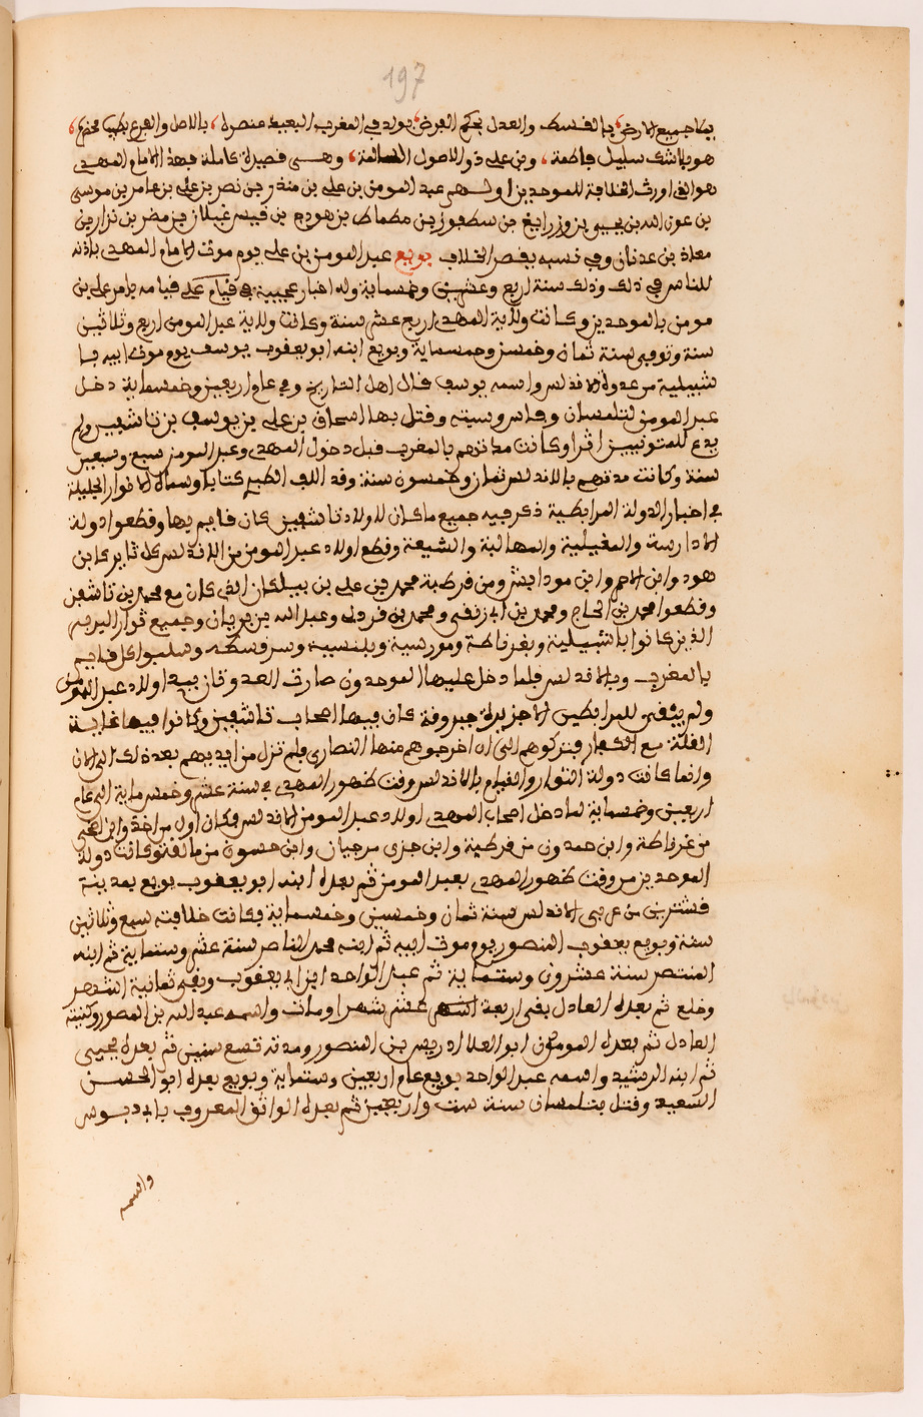 197
يطا جميع الارض، بالقسط والعدل بحكم الفرض، يولد في المغرب البعيد عنصره، بالاصل والفرع بطيب مخبره،
هو بلا شك سليل فاطمة، ومن على ذو الاصول السالمة، وهي قصيرة كاملة فهذا الامام المهدي
هو الذي اورث الخلافة للموحدين اولهم عبد المومن بن علي بن منذر بن نصر بن علي بن عامر بن موسى
بن عون الله بن يحيى بن وزرايغ بن سطفور بن مطماط بن هودج بن قيس غيلان بن مضر بن نزار بن
معاذ بن عدنان وفي نسبه بعض الخلاف بويع عبد المومن بن علي يوم موت الامام المهدي باذنه
للناس في ذلك وذلك سنة اربع وعشرين وخمسماية وله اخبار عجيبة في قيام علي قيامه يامر علي بن
مومن بالموحدين وكانت ولاية المهدي اربع عشر سنة وكانت ولاية عبد المومن اربع وثلاثين
سنة وتوفي سنة ثمان وخمسين وخمسماية وبويع ابنه ابو يعقوب يوسف يوم موت ابيه با
شبيلية من عدوة الاندلس واسمه يوسف قال اهل التاريخ وفي عام اربعين وخمسماية دخل
عبد المومن لتلمسان وفاس وسبتة وقتل بها اسحاق بن علي بن يوسف بن تاشفين ولم
يدع للمتونيين اثرا وكانت مدتهم بالمغرب قبل دخول المهدي وعبد المومن سبع وسبعين
سنة وكانت مدتهم بالاندلس ثمان وخمسون سنة وقد الف الطبع كتابا وسماه الانوار الجليلة
في اخبار الدولة المرابطية ذكر فيه جميع ما كان لاولاد تاشفين كان قايم بها وقطعوا دولة
الادارسة والمغيلية والمهالبة والشيعة وقطع اولاد عبد المومن من الاندلس كل ثاير كابن
هود وابن الاحمر وابن مودانيش ومن قرطبة محمد بن علي بن بيلكان الذي كان مع محمد بن تاشفين
وقطعوا محمد بن الحاج ومحمد بن ابي زنغي ومحمد بن فردلى وعبد الله بن بريان وجميع ثوار البربر
الذين كانوا باشبيلية وبغرناطة ومورسية وبلنسية وسرقسطه وسلبوا كل قايم
بالمغرب وبالاندلس فلما دخل عليها الموحدون صارت العدوتان بيد اولاد عبد المومن
ولم يبقى للمرابطين الا جزيرة ميروقة كان فيها اصحاب تاشفين وكانوا فيها غاية
القلة مع الكفار فتركوهم الى ان اخرجوهم منها النصارى فلم تزل من ايديهم بعد ذلك الى الان
وانما كانت دولة الثوار والقيام بالاندلس وقت ظهور المهدي في سنة عشر وخمس ماية الى عام
اربعين وخمسماية لما دخل اصحاب المهدي اولاد عبد المومن الاندلس فكان اول من اخذوا ابن الحي
من غرناطة وابن حمدون من قرطبة وابن جزي من جيان وابن حسون من مالقة وكانت دولة
الموحدين من وقت ظهور المهدي بعبد المومن ثم بعده ابنه ابو يعقوب بويع بمدينة
شنترين من عربي الاندلس سنة ثمان وخمسين وخمسماية وكانت خلافته سبع وثلاثين
سنة وبويع يعقوب المنصور يوم موت ابيه ثم ابنه محمد الناصر سنة عشر وستماية ثم ابنه
المنتصر سنة عشرون وستماية ثم عبد الواحد ابن ابي يعقوب وبقي ثمانية اشهر
وخلع ثم بعده العادل بقي اربعة اشهر عشر شهرا ومات واسمه عبد الله بن المنصور وكنيته
العادل ثم بعده المومون ابو العلا ادريس بن المنصور ومدته تسع سنين ثم بعده يحيى
ثم ابنه الرشيد واسمه عبد الواحد بويع عام اربعين وستماية وبويع بعده ابو الحسن
السعيد وقتل بتلمسان سنة ست واربعين ثم بعده الواثق المعروف بابي دبوس
واسمه